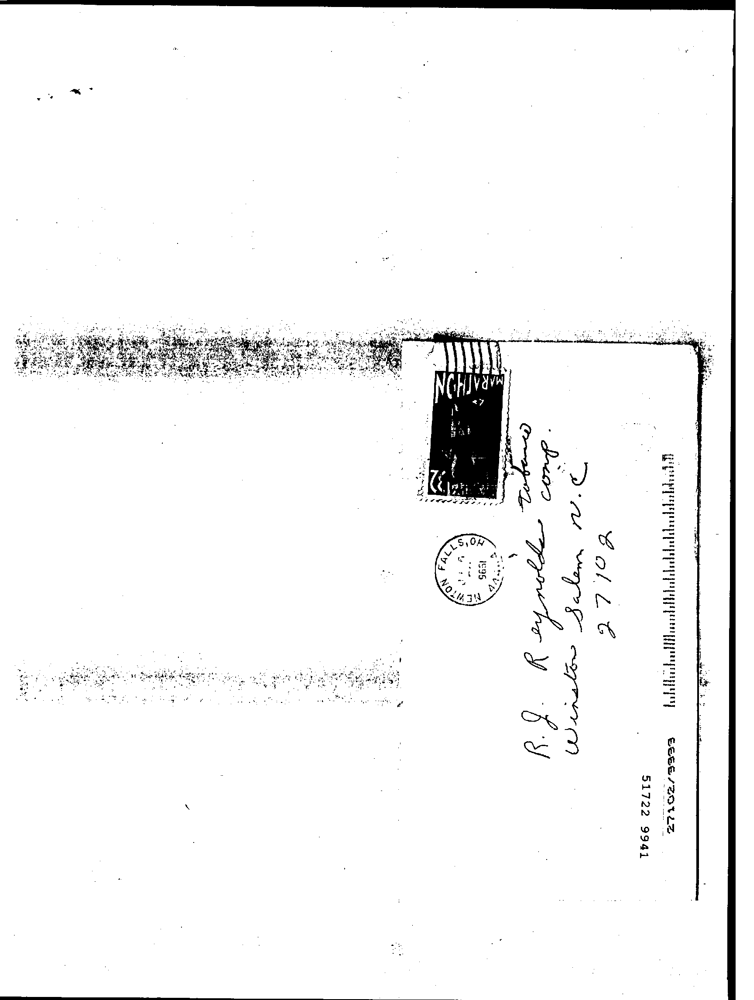 MARATHON
32
NEWTON FALLS, OH
1995
R.J. Reynolds Tobacco
comp.
Winston Salem N.C
27102
27102/9999
51722 9941